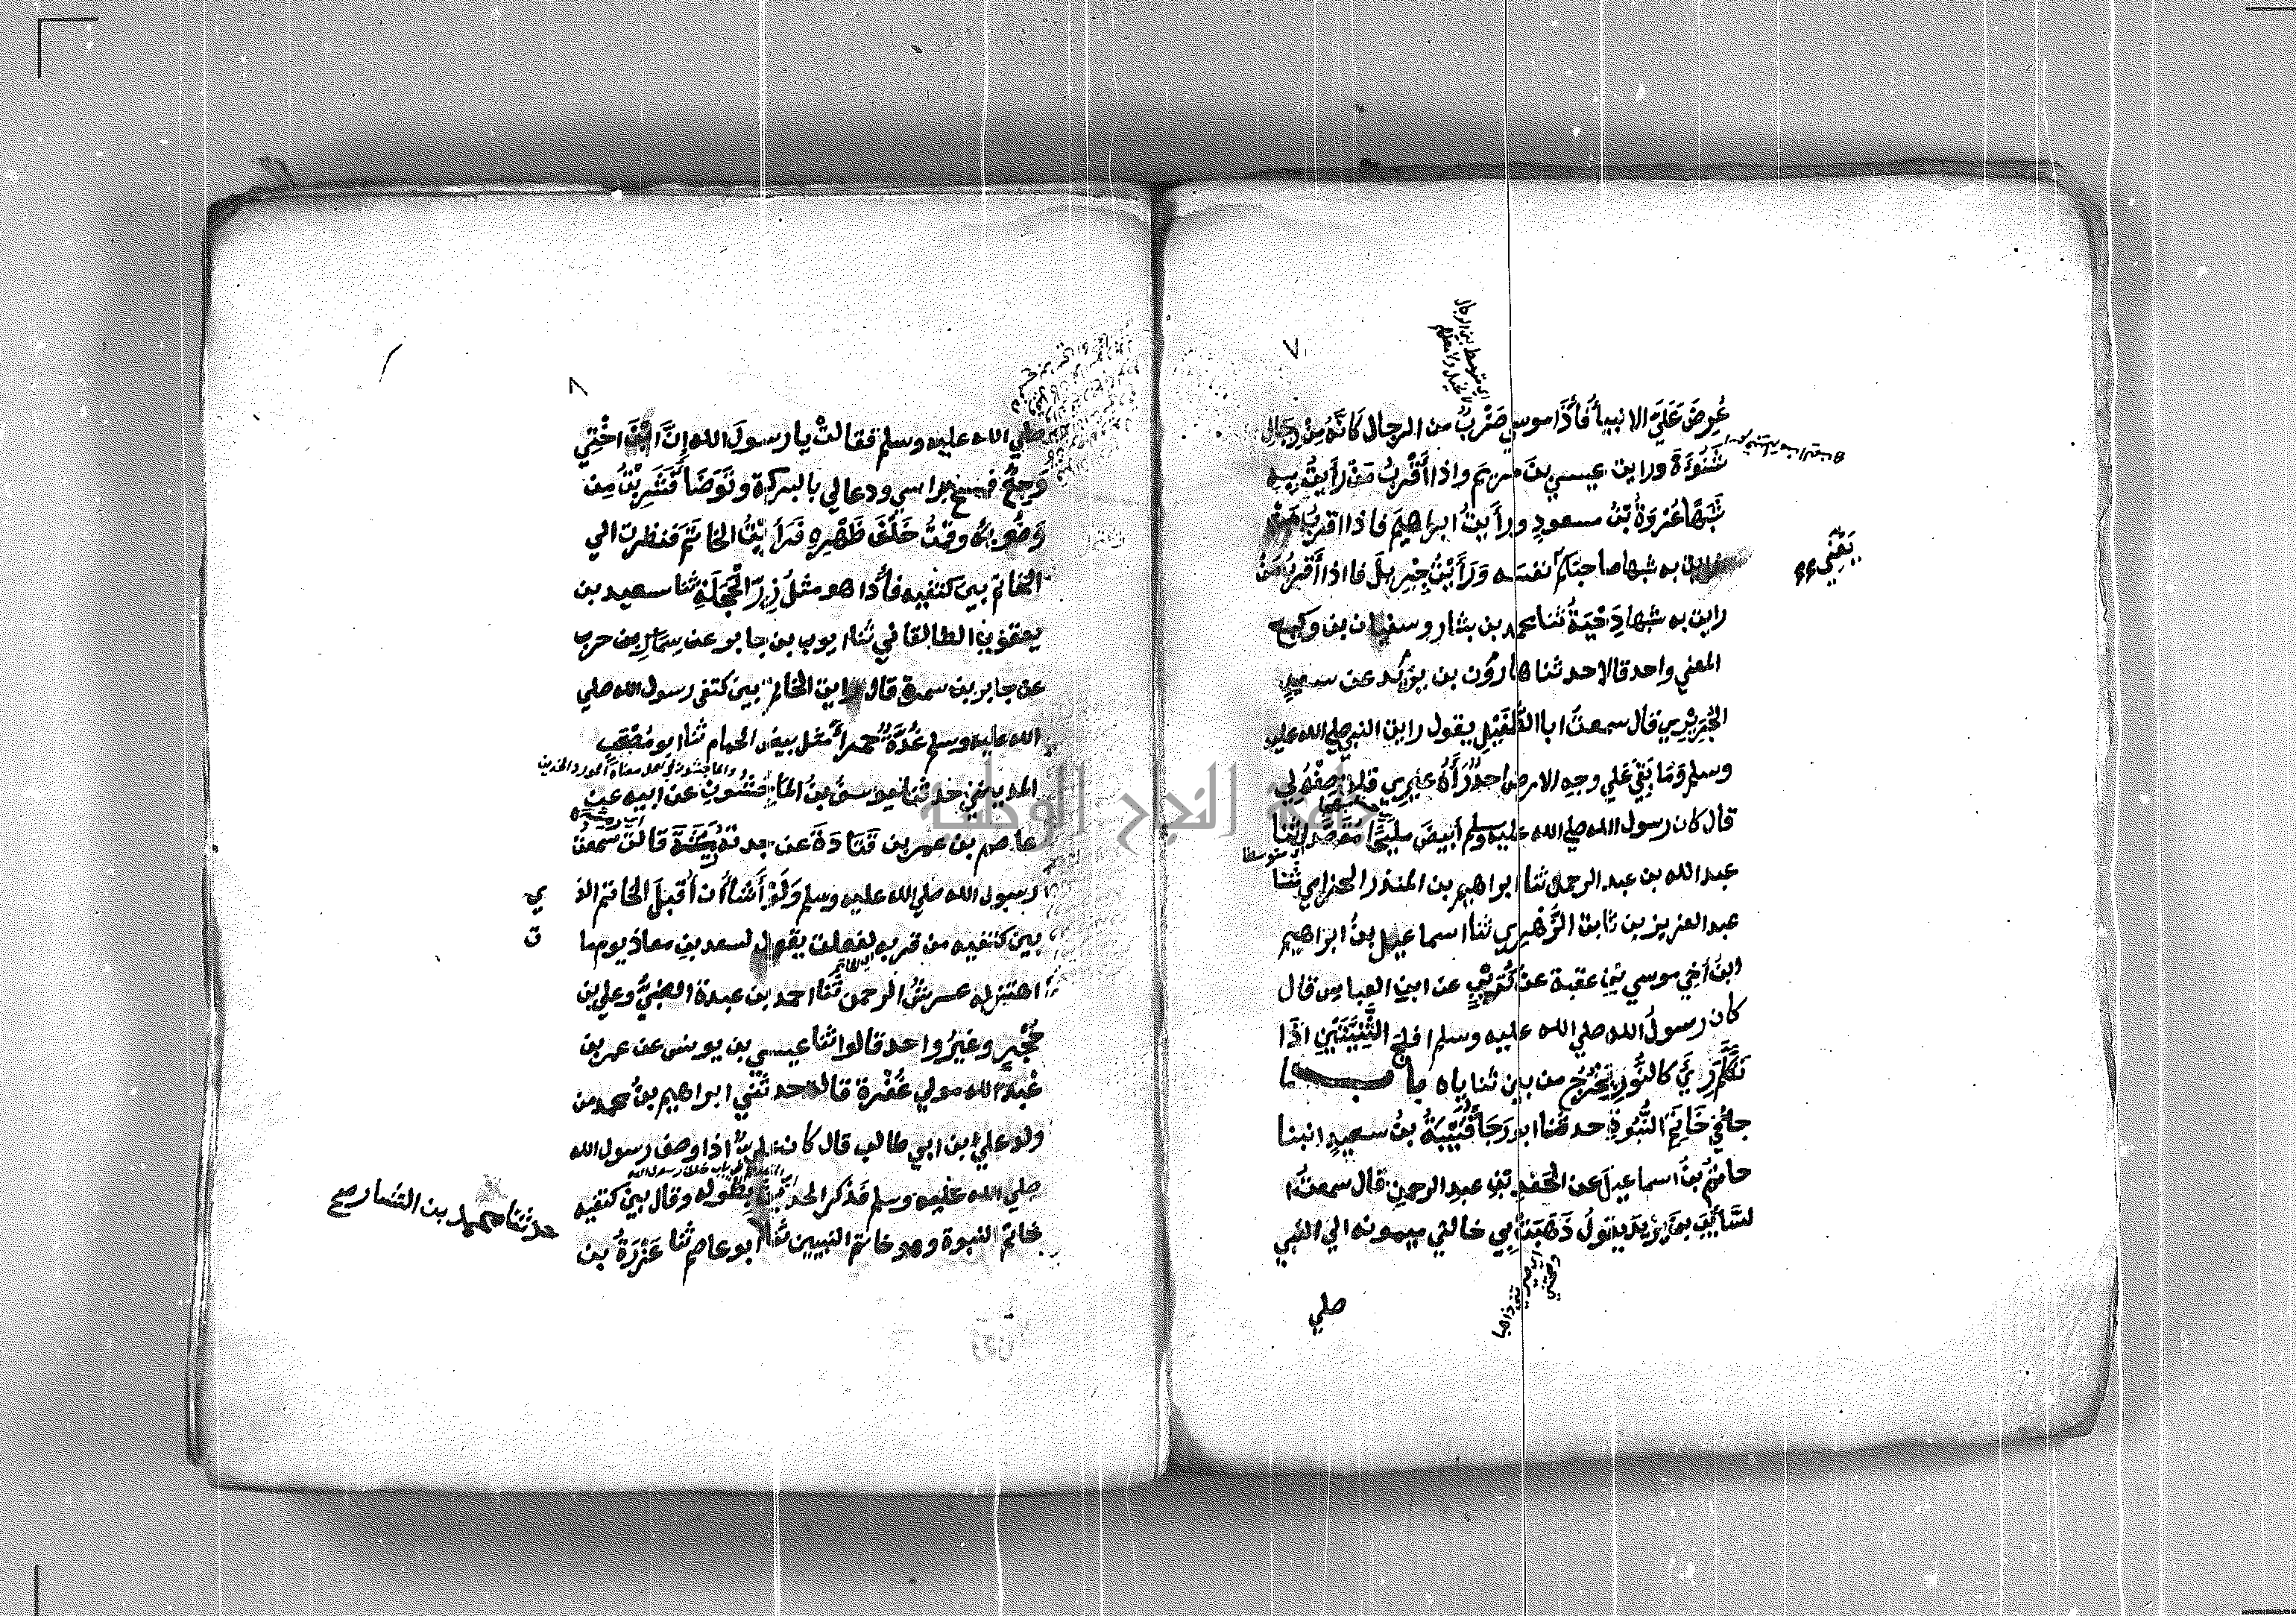 ٧
عُرِضَ عَلَيَّ الانبيأ فأذا موسي ضَرْبٌ من الرجال كَأنَّهُ مِنْ رجال
شَنُوءَةَ ورايت عيسي بنَ مريم واذا أَقْرَبُ مَنْ رَأيتُ به
شَبَهًا عُرْوَةُ بْنُ مسعودٍ ورأيتُ ابراهيمَ فاذا اقربُ مَنْ
رايت به شبها صاحبكم نفسَه وَرَأَيْتُ جِبْرِيلَ فاذا أَقْرَبُ مَنْ
يَعْنِي
رايت به شبها دِحْيَةُ ثنا محمد بن بشار وسفيان بن وكيع
المعني واحد قالا حدثنا هارون بن يزيد عن سعيدٍ
الجُرَيْرِي قال سمعتُ ابا الطُّفَيْلِ يقول رايت النبي صلي الله عليه
وسلم وَمَا بَقِيَ عَلي وجهِ الارض احدٌ رَأَهُ غيرِي قلتُ صِفْهُ لِي
قال كان رسول الله صلي الله عليه وسلم أبيضَ مليحًا مُقَصَّدًا ثنا
عبد الله بن عبد الرحمن ثنا ابراهيم بن المنذر الحزامي ثنا
عبد العزيز بن ثابت الزُّهْرِي ثنا اسماعيل بنُ ابراهيم
ابنُ أخِي موسي بْنِ عقبة عَنْ كُرَيْبٍ عن ابن العباس قال
كان رسولُ الله صلي الله عليه وسلم افلج الثَّنِيَّتَيْنِ اذَا
تَكَلَّمَ رُئِيَ كالنُّورِ يَخْرُجُ من بين ثناياه باب ما
جاء في خَاتَمِ النُّبُوَّةِ حدثنا ابو رَجَأ قُتَيْبَةُ بنُ سعيدٍ انبنا
حاتمُ بنُ اسماعيلَ عن الجَعْدِ بْنِ عبد الرحمنِ قال سمعتُ ا
لسَّائِبَ بنَ يزيدَ يقولُ ذَهَبَتْ بِي خالتي ميمونه الي النبي
صلي
٨
صلي الله عليه وسلم فقالتْ يا رسولَ الله إِنَّ ابْنَ اخْتِي
وَجِعٌ فمسح براسي ودعا لي بالبركة وتَوَضَّأَ فَشَرِبْتُ مِن
وَضُوئِهِ وقمْتُ خَلْفَ ظَهْرِهِ فَرَأَيْتُ الخَاتَمَ فنظرت الي
الخاتم بين كتفيه فأذا هو مثلُ زِرِّ الْحَجَلَةِ ثنا سعيد بن
يعقوب الطالقاني ثنا ايوب بن جابر عن سِمَاكِ بن حرب
عن جابر بن سمرة قال رايت الخاتم بين كتفي رسول الله صلي
الله عليه وسلم غُدَّةً حمرأ مثل بيض الحمام ثنا ابو مُصْعَبٍ
المديني حدثنا يوسفُ بنُ الماجشونِ عن ابيه عن
عاصم بن عمر بن قَتَادَةَ عن جدته رُمَيْثَةَ قالت سمعتُ
رسول الله صلي الله عليه وسلم وَلَوْ أَشَأ أن أُقبلَ الخاتم الذ
ي
بين كتفيه من قربه لفعلت يقول لسعد بن معاذ يوم ما
ت
اهتز له عرشُ الرحمن ثنا احمد بن عبدة الضبيُّ وعلي بن
حُجْرٍ وغيرُ واحد قالوا ثنا عيسي بن يونس عن عمر بن
عبد الله مولي غُفْرَة قال حدثَنِي ابراهيم بنُ محمد من
ولد علي ابن ابي طالب قال كان عليٌّ اذا وصف رسول الله
صلي الله عليه وسلم فذكر الحديث بطوله وقال بينَ كتفيه
خاتم النبوة وهو خاتم النبيين ثنا ابو عاصم ثنا عَزْرَةُ بن
حدثنا محمد بن بشار صح
جامعة النجاح الوطنية